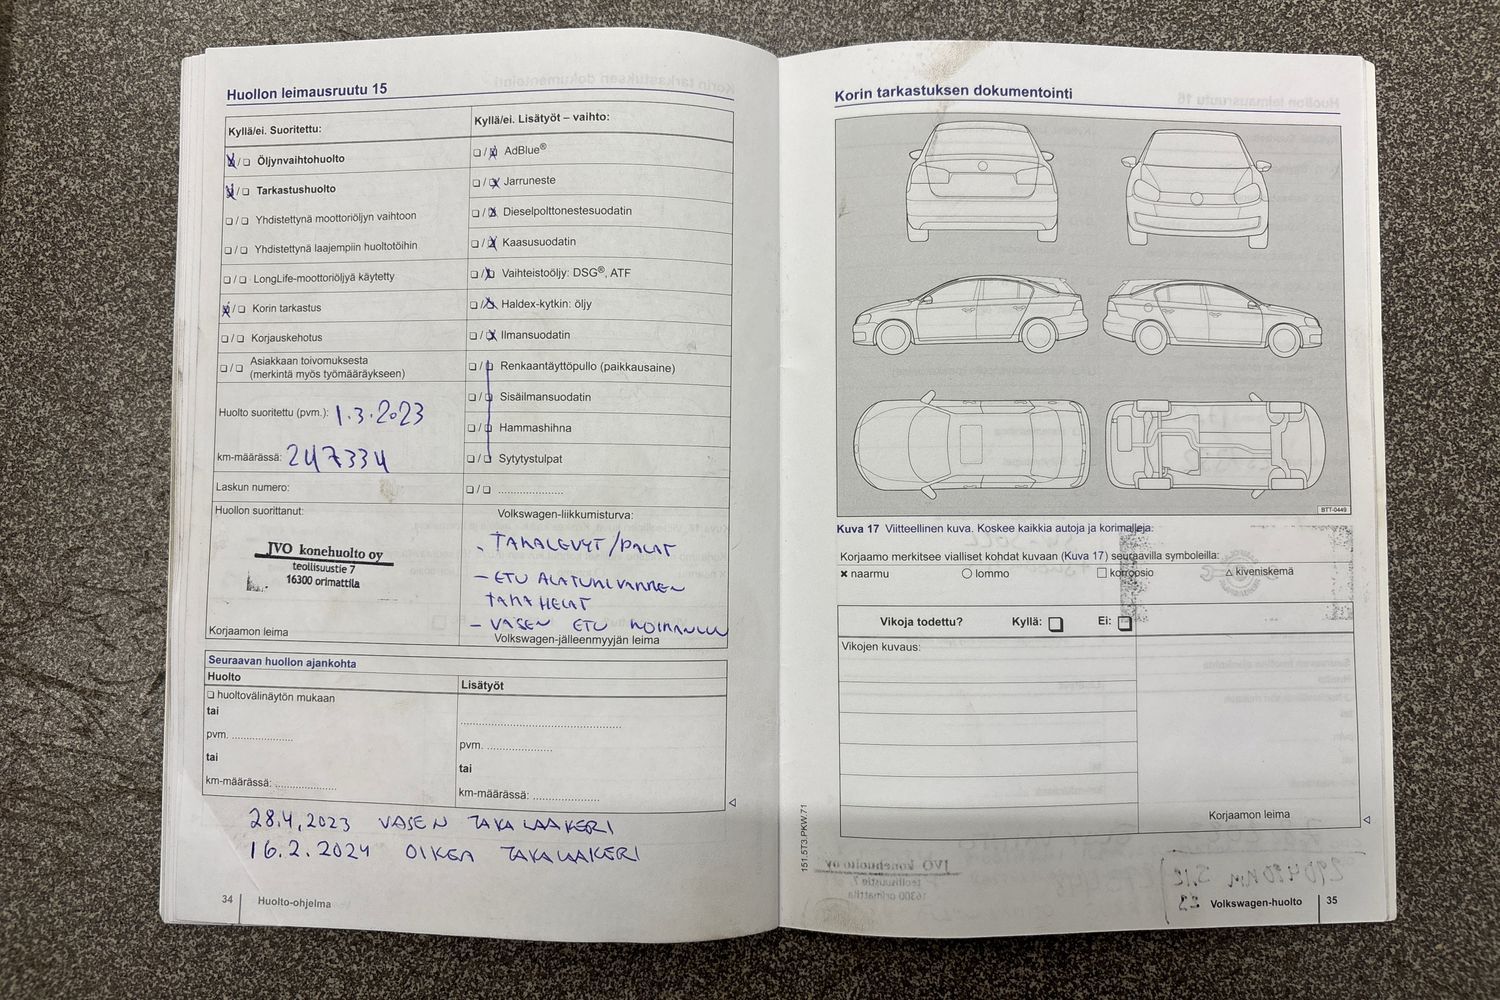 Huollon leimausruutu 15
Kyllä/ei. Suoritettu:
☒/❏ Öljynvaihtohuolto
☒/❏ Tarkastushuolto
❏/❏ Yhdistettynä moottoriöljyn vaihtoon
❏/❏ Yhdistettynä laajempiin huoltotöihin
❏/❏ LongLife-moottoriöljyä käytetty
☒/❏ Korin tarkastus
❏/❏ Korjauskehotus
❏/❏ Asiakkaan toivomuksesta
(merkintä myös työmääräykseen)
Huolto suoritettu (pvm.): 1.3.2023
km-määrässä: 247334
Laskun numero:
Huollon suorittanut:
JVO konehuolto oy
teollisuustie 7
16300 orimattila
Korjaamon leima
Kyllä/ei. Lisätyöt – vaihto:
❏/☒ AdBlue®
❏/☒ Jarruneste
❏/☒ Dieselpolttonestesuodatin
❏/☒ Kaasusuodatin
❏/☒ Vaihteistoöljy: DSG®, ATF
❏/☒ Haldex-kytkin: öljy
❏/☒ Ilmansuodatin
❏/❏ Renkaantäyttöpullo (paikkausaine)
❏/❏ Sisäilmansuodatin
❏/❏ Hammashihna
❏/❏ Sytytystulpat
❏/❏ ......................
Volkswagen-liikkumisturva:
- TAKALEVYT/PALAT
- ETU ALATUKIVARREN
TAKA HELAT
- VASEN ETU
Volkswagen-jälleenmyyjän leima
Seuraavan huollon ajankohta
Huolto
❏ huoltovälinäytön mukaan
tai
pvm. ....................
tai
km-määrässä: ....................
Lisätyöt
......................................................
pvm. ......................
tai
km-määrässä: ......................
28.4.2023 VASEN TAKALAAKERI
16.2.2024 OIKEA TAKALAAKERI
34 Huolto-ohjelma
Korin tarkastuksen dokumentointi
BTT-0449
Kuva 17 Viitteellinen kuva. Koskee kaikkia autoja ja korimalleja.
Korjaamo merkitsee vialliset kohdat kuvaan (Kuva 17) seuraavilla symboleilla:
✖ naarmu ○ lommo □ korroosio △ kiveniskemä
Vikoja todettu? Kyllä: ❏ Ei: ❏
Vikojen kuvaus:
Korjaamon leima
151.5T3.PKW.71
Volkswagen-huolto 35